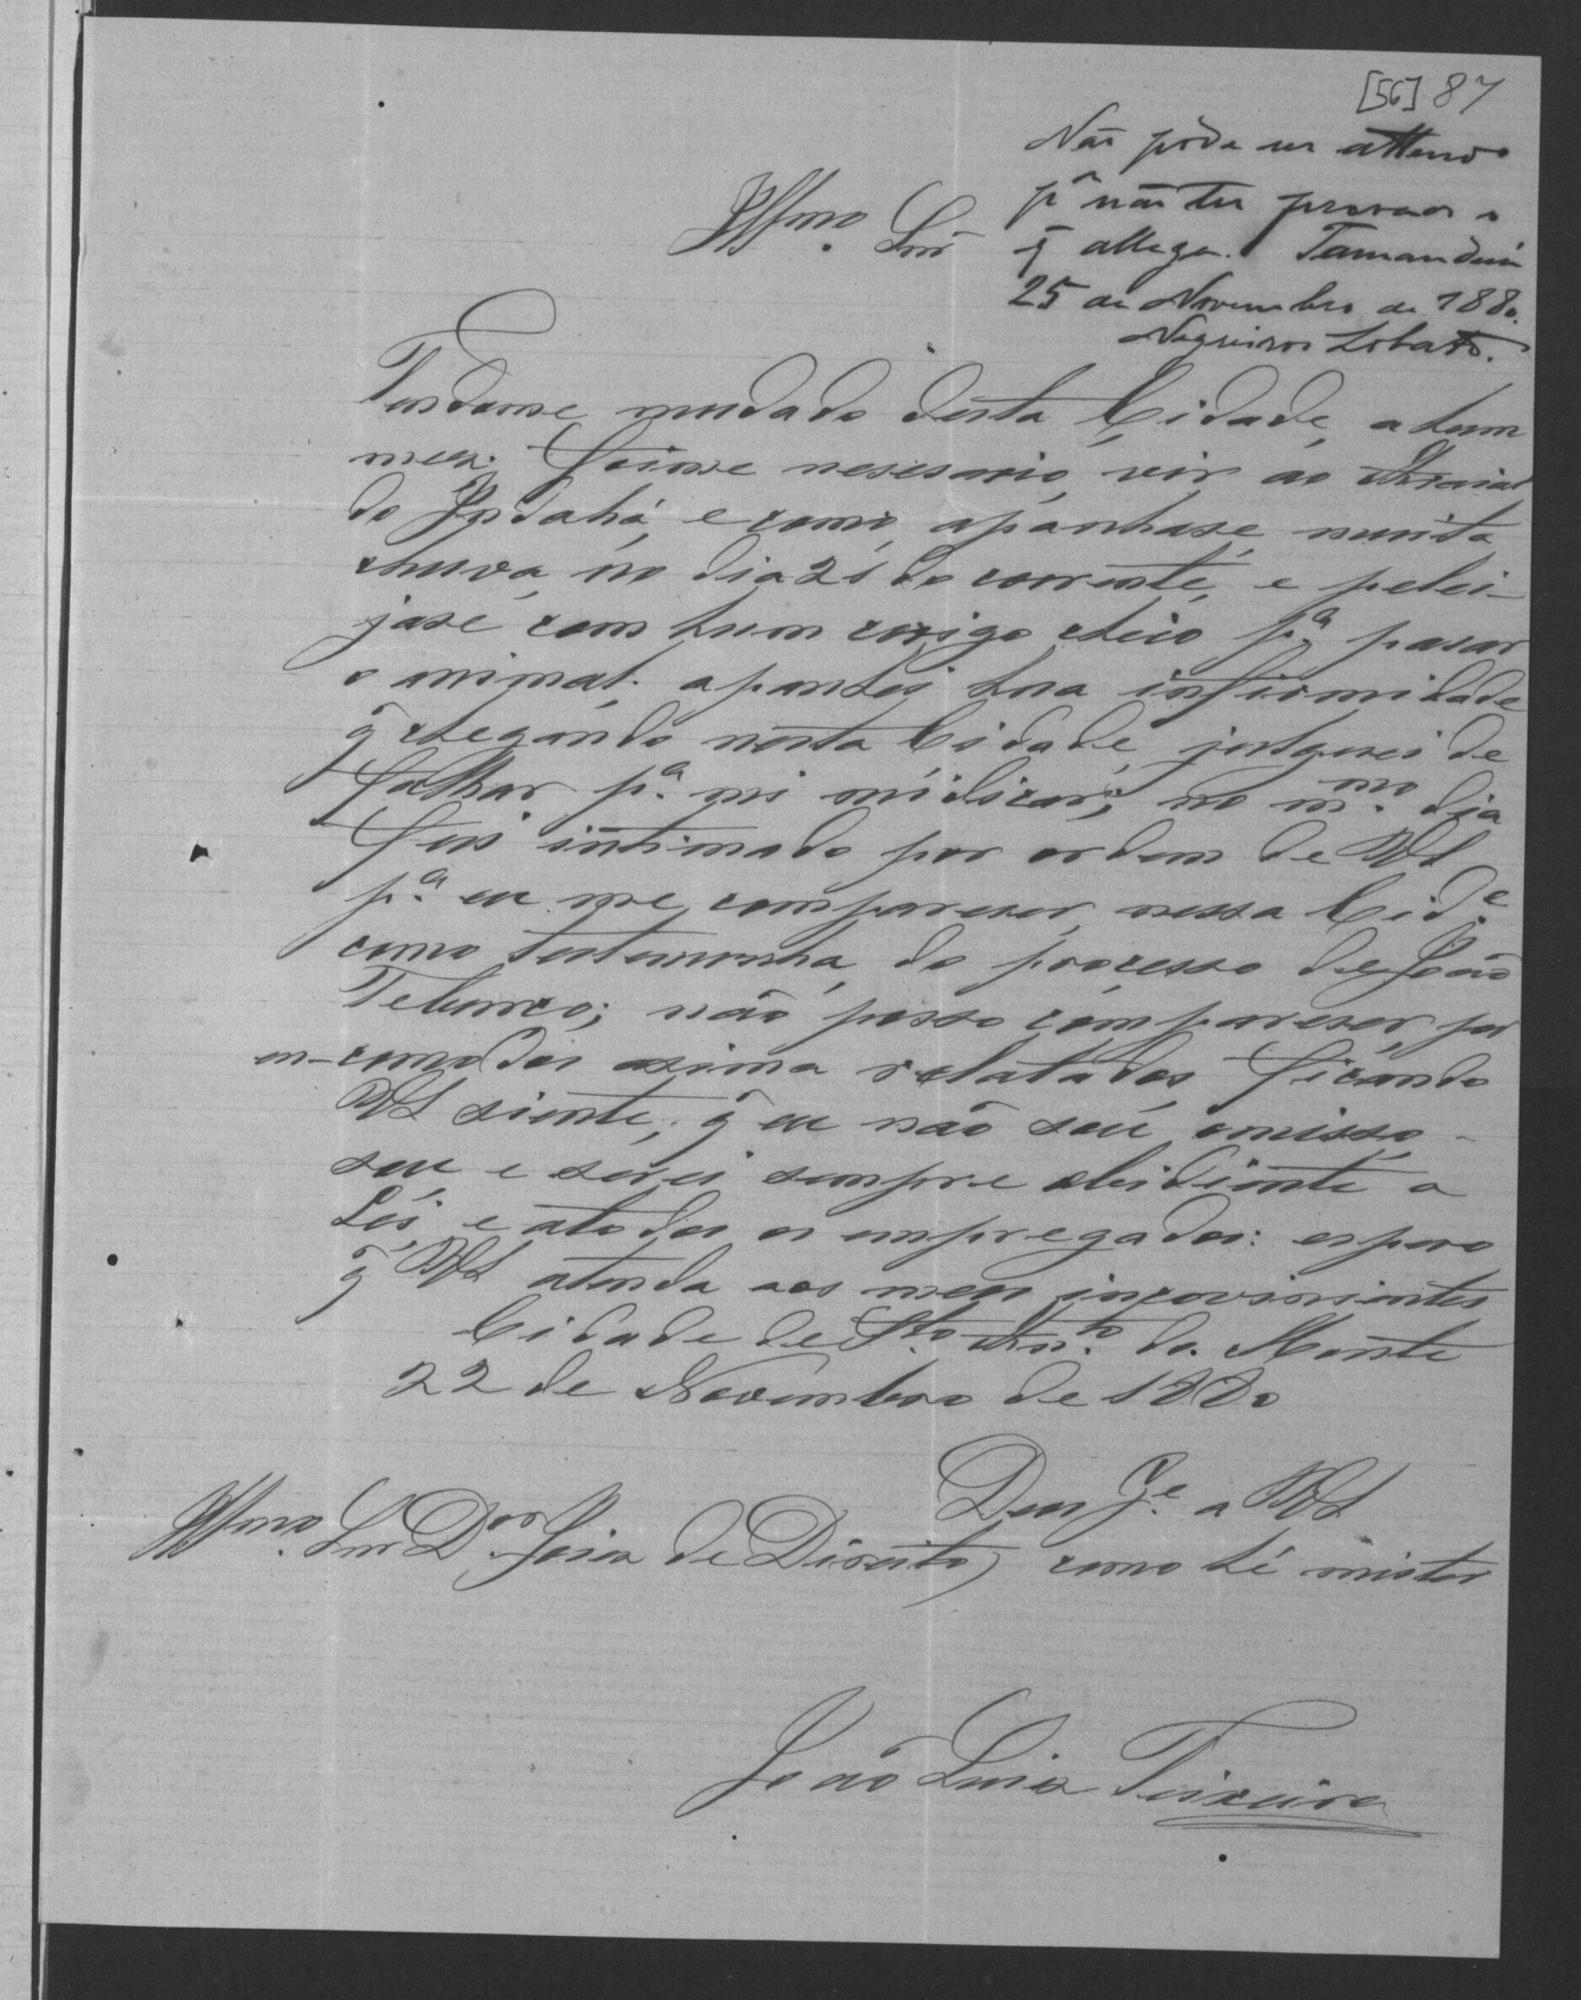 [56] 87
Não póde ser attendo
pr não ter provado o
q̃ allega. Tamanduá
25 de Novembro de 1880.
Nogueira Lobato.
Illmo. Snr
Tendome mudado desta Cidade, a hum
mez. Foime nesesario, vir ao Arraial
do Indahá, e como, apanhase, muita
chuva, no dia 21 do corrente, e pelei-
jase com hum corigo cheio pa. pasar
o animal. apanhei hua infirmidade
q̃ chegando nesta Cidade, julguei de
falhar pa. mi midicar; no mmo. dia
fui intimado por ordem de VS
pa. eu me compareser, nessa Cide.
como testemunha, do processo de João
Teburco; não posso compareser, por
en-comodos asima relatados ficando
VS siente, q̃ eu não sou omisso,
sou e serei sempre obidiente a
Lei, e a todos os empregados: espero
q̃ VS atenda aos meus inconvinientes
Cidade de Sto. Anto. do Monte
22 de Novembro de 1880
Deus Ge. a VS
Illmo. Snr Dor. Juiz de Direito, como hé mister
João Luiz Teixeira